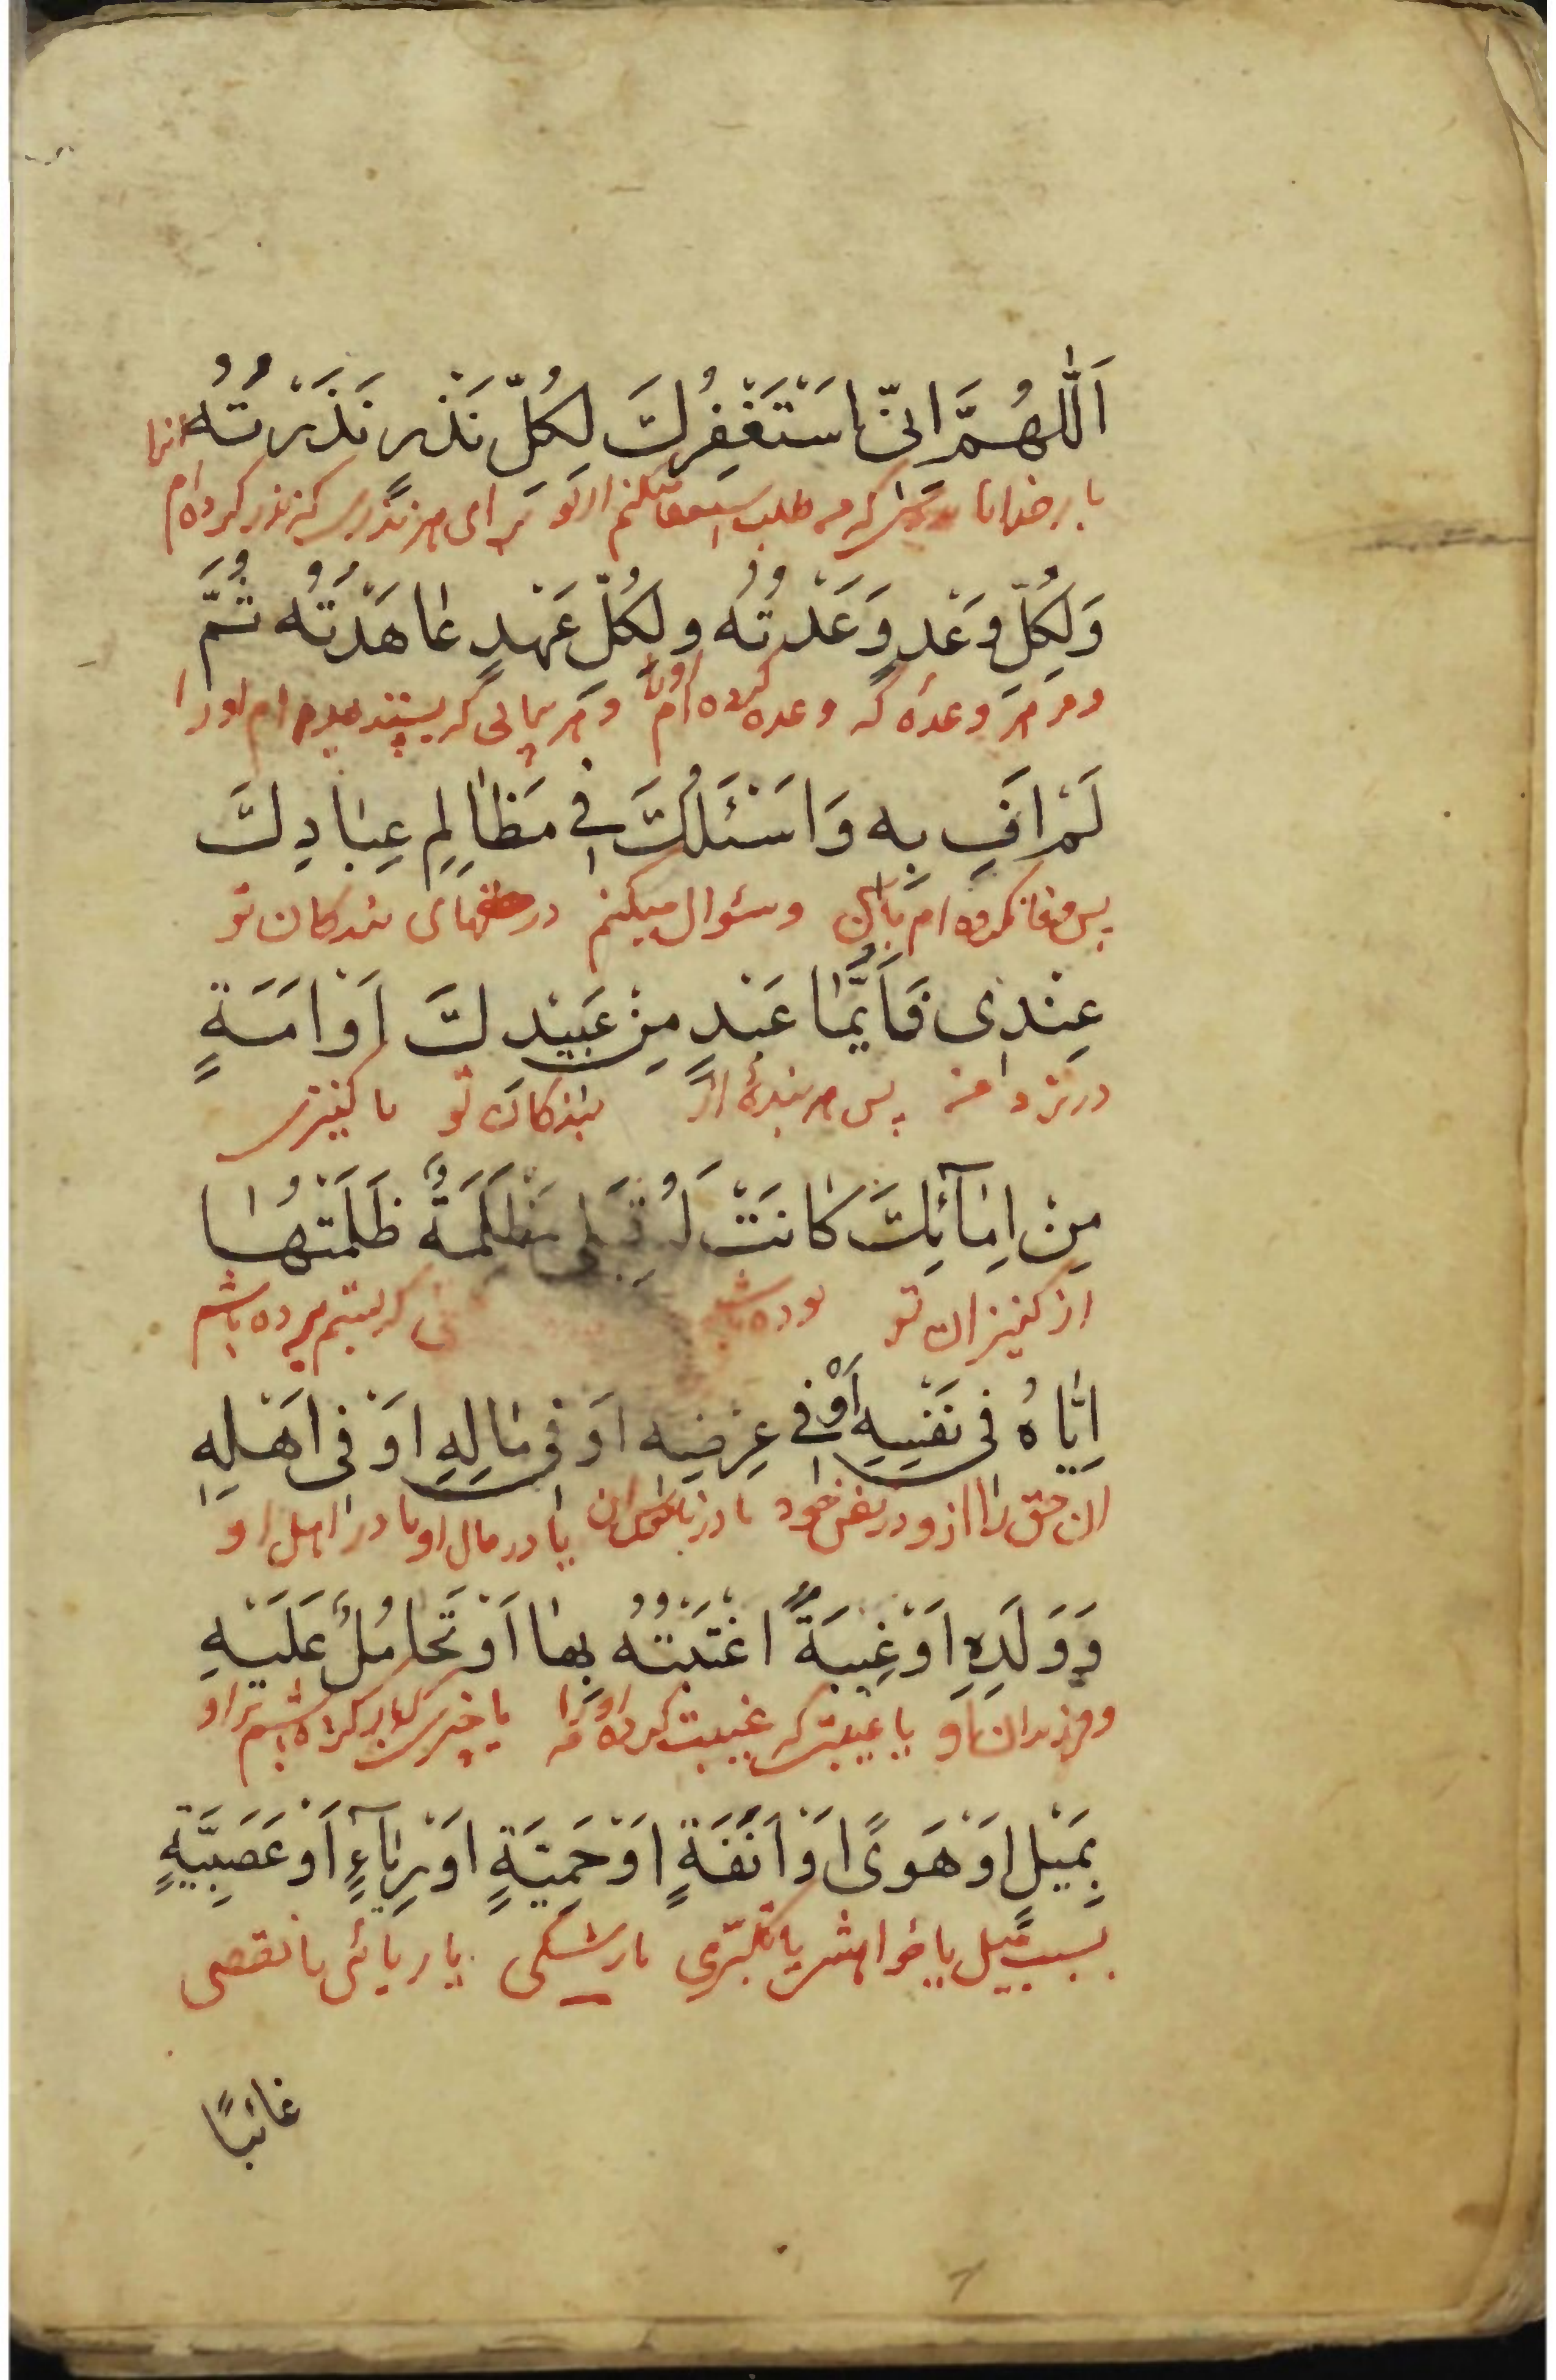 اَللّٰهُمَّ اِنّی اَسْتَغْفِرُكَ لِكُلِّ نَذْرٍ نَذَرْتُهُ
بار خدایا بدرستی که من طلب میکنم از تو برای هر نذری که نذر کرده‌ام انرا
وَلِكُلِّ وَعْدٍ وَعَدْتُهُ ولِكُلِّ عَهْدٍ عٰاهَدْتُهُ ثُمَّ
و هر وعدۀ که وعده کرده‌ام اورا و هر پیمانی که ام اورا
لَمْ اَفِ بِهِ وَاَسْئَلُكَ فِی مَظٰالِمِ عِبٰادِكَ
پس وفا نکرده‌ام بآن و سئوال میکنم در های بندکان تو
عِنْدِی فَاَیُّمٰا عَبْدٍ مِنْ عَبِیْدِكَ اَوْ اَمَةٍ
در نزد من پس هر بندۀ از بندکان تو یا کنیزی
مِنْ اِمٰآئِكَ كٰانَتْ لَهُ قِبَلِی مَظْلِمَةٌ ظَلَمْتُهٰا
از کنیزان تو بوده باشد که بستم برده باشم
اِیّٰاهُ فی نَفْسِهِ اَوْ فِی عِرْضِهِ اَوْ فی مٰالِهِ اَوْ فی اَهْلِهِ
ان حق را از او در نفس خود یا در یا در مال او یا در اهل او
وَوَلَدِهِ اَوْ غِیبَةٌ اغْتَبْتُهُ بِهٰا اَوْ تَحٰامُلٌ عَلَیْهِ
و فرزندان او یا غیبتی که غیبت کرده‌ام اورا یا چیزی که بار کرده باشم بر او
بِمَیْلٍ اَوْ هَوًی اَوْ اَنَفَةٍ اَوْ حَمِیَّةٍ اَوْ رِیٰآءٍ اَوْ عَصَبِیَّةٍ
بسبب میل یا خواهش یا تکبّری یا رشکی یا ریائی یا تعصبی
غائبًا